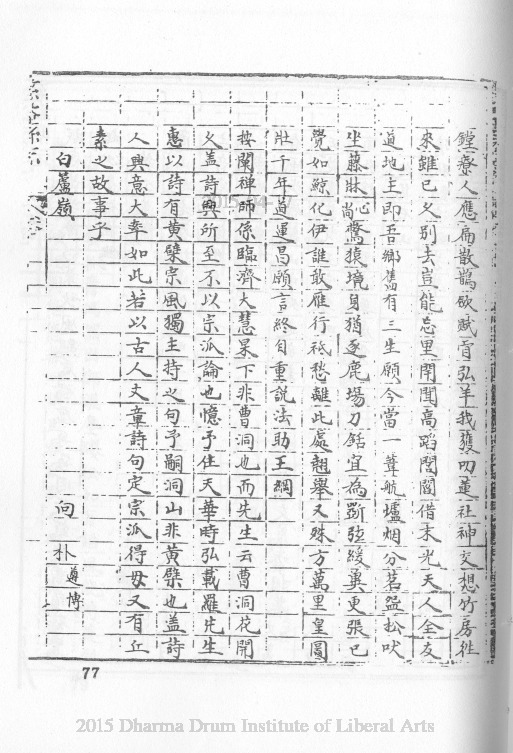 鐙寮人應扁散鵠欲賦霄弘羊我獲叨蓮社神交想竹房往
來雖已久別去豈能忘里閈聞高蹈閻閻借末光天人全友
道地主即吾鄉舊有三生願今當一葦航壚烟分茗盌松吹
坐藤牀心尚驚猿境身猶逐鹿場刀銛宜為斷弦緩冀更張已
覺如鯨化伊誰敢雁行祗愁離此處翹舉又殊方萬里皇圖
壯千年道運昌願言終自重說法助王綱
按闡禪師係臨濟大慧杲下非曹洞也而先生云曹洞花開
久蓋詩興所至不以宗派論也憶予住天華時弘載羅先生
惠以詩有黃檗宗風獨主持之句予嗣洞山非黃檗也蓋詩
人興意大率如此若以古人文章詩句定宗派得毋又有丘
素之故事乎
白蘆嶺
向朴遵博
77
2015 Dharma Drum Institute of Liberal Arts